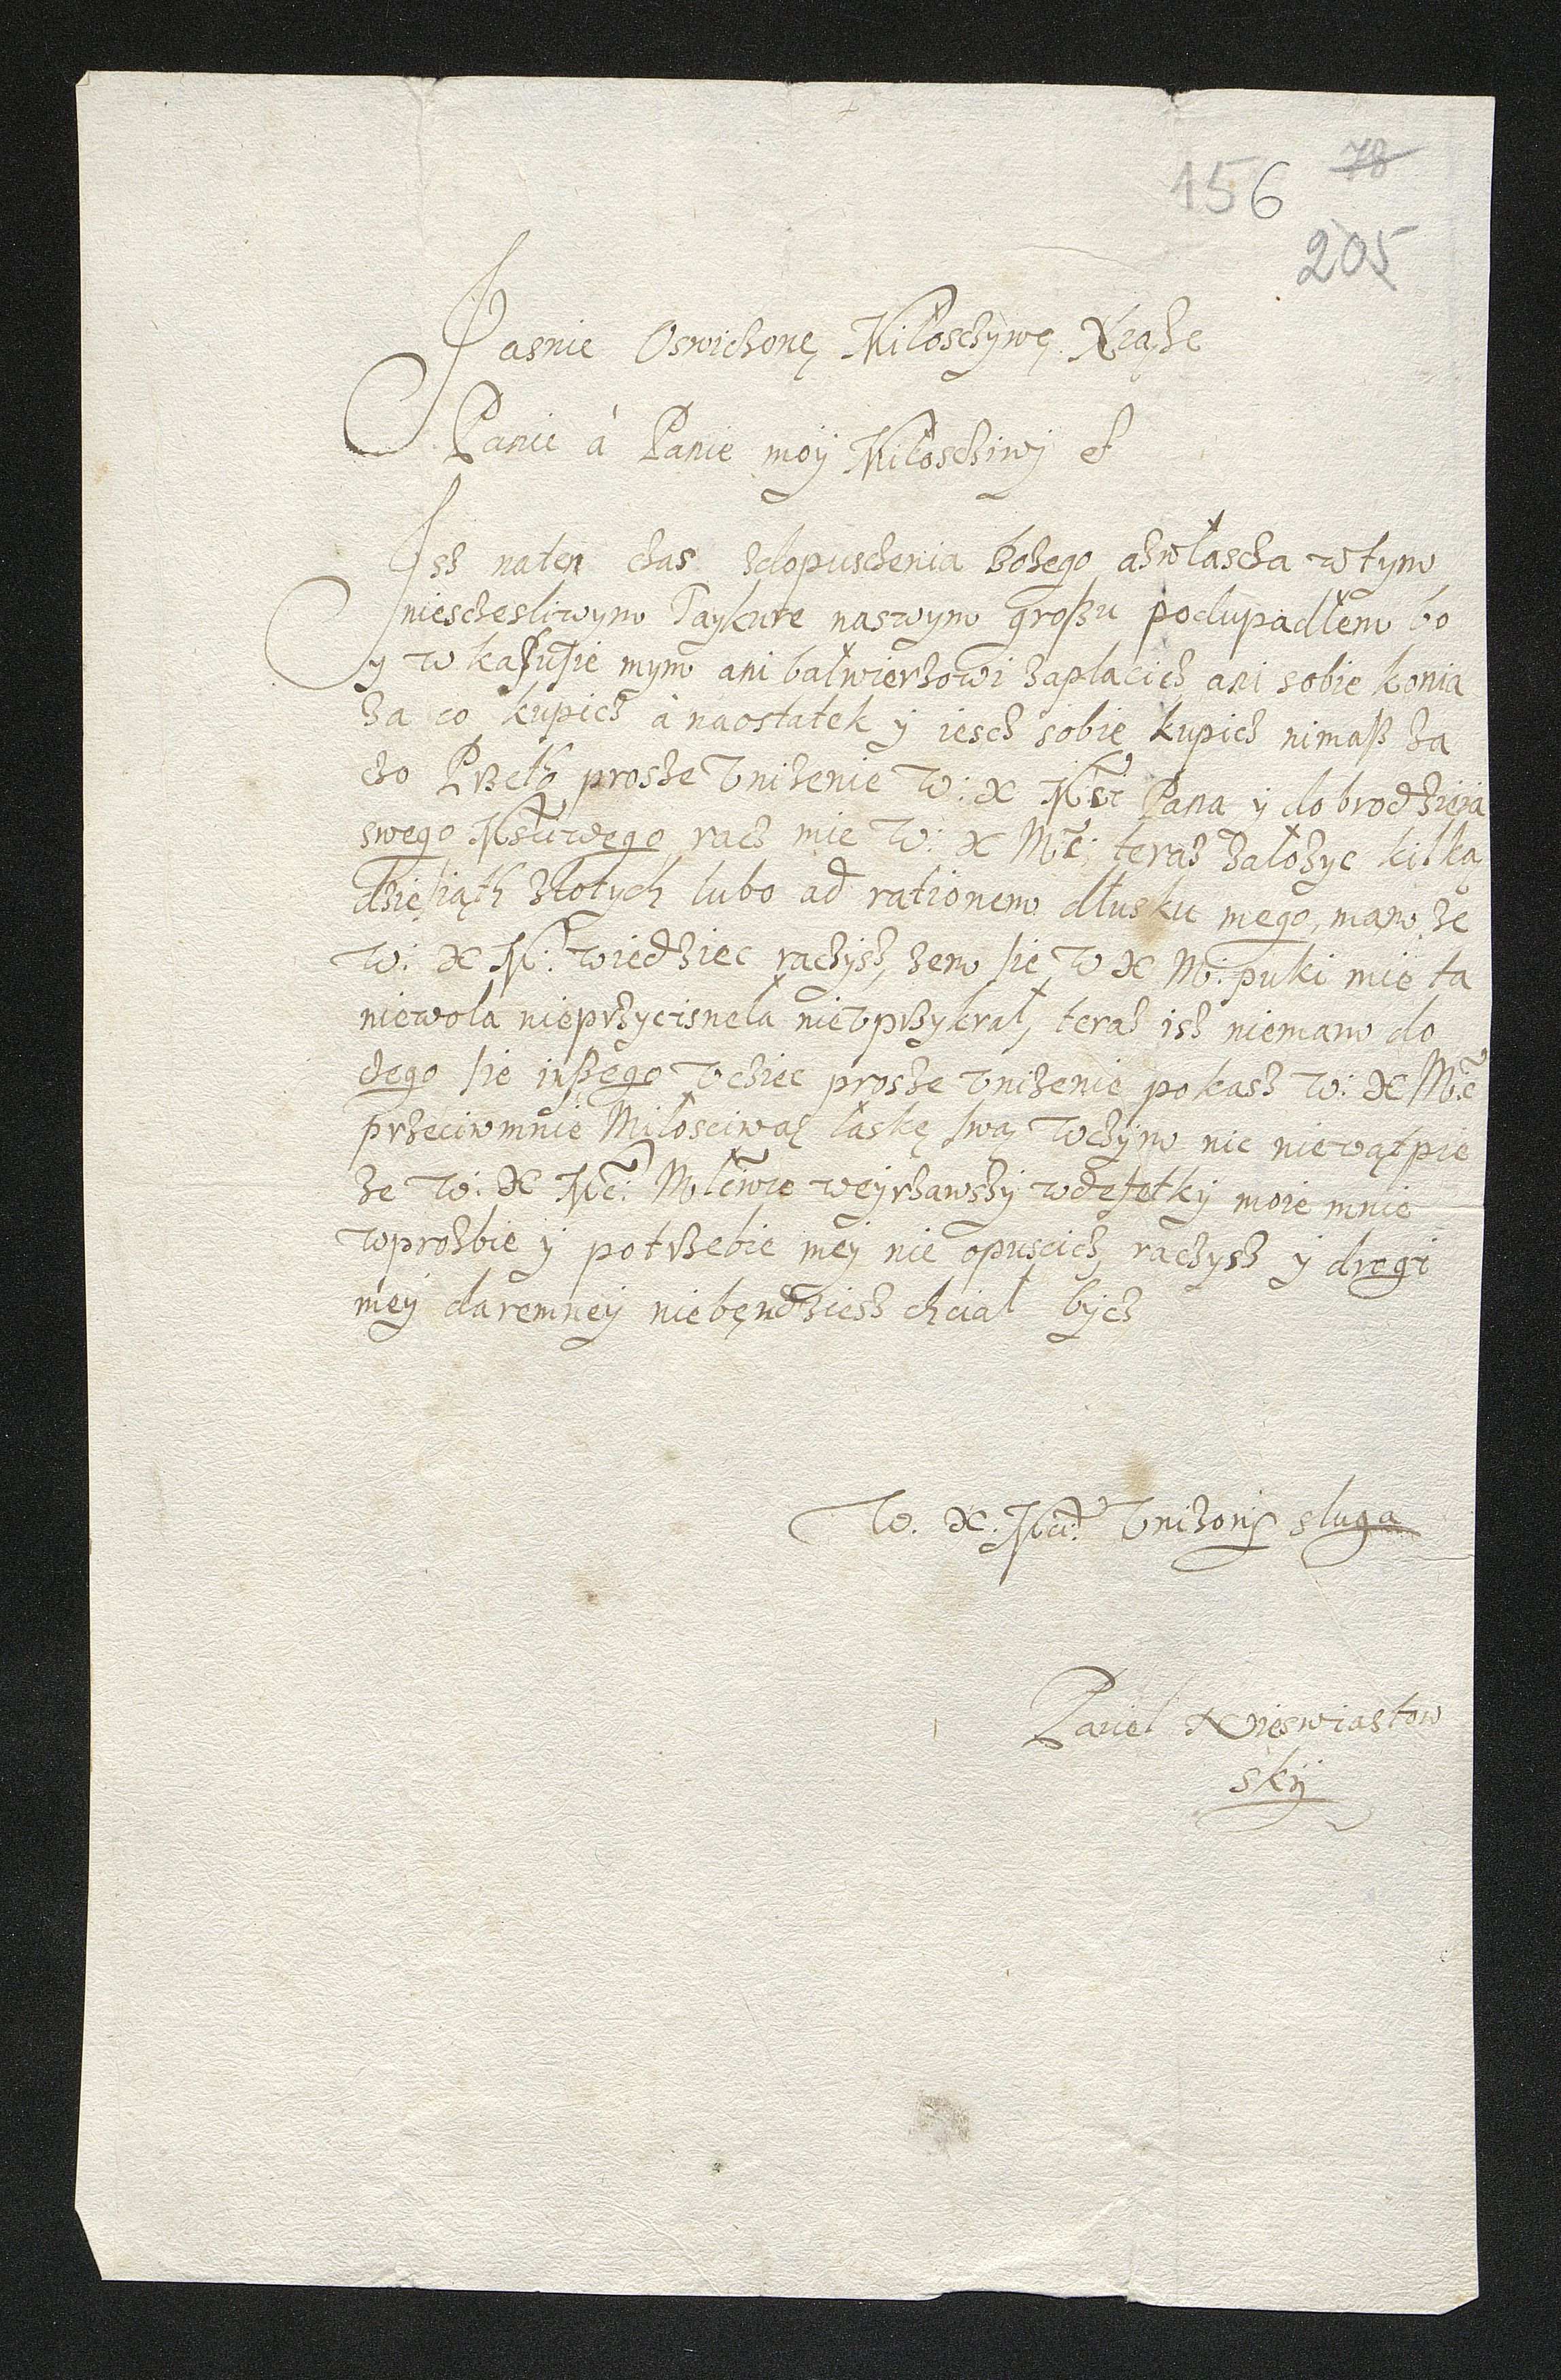 78
156
205
Jasnie Oswiczonę Miloschywę Xiąże
Panie à Panie moÿ Miloschiwÿ et
Jsz naten czas zdopusczenia bożego azwłascza wtym
niesczesliwym Taykure naswym großu podupadłem bo
y w każusie mym ani balwierzowi zaplacicz ani sobie konia
za co kupicz à naostatek ÿ iescz sobie kupicz nimaß za
czo Przeto prosze Vnizenie W: X Mci Pana ÿ dobrodzieia
swego Mściwego racz mie W: X Mć: teraz założyc kilka
dziesiąth złotych lubo ad rationem dłusku mego, mam, ze
W: X M: wiedziec raczysz, zem sie W X M: puki mie ta
niewola nieprzycisnela nieVprzykrał, teraz isz niemam do
czego sie inßego Vcziec prosze Vnizenie pokasz W: X Mć
przeciwmnie Miłosciwaą laskę swą wczym nic niewątpie
ze W: X Mć: Mlćiwie weyrzawszÿ wdefetkÿ moie mnie
wprozbie ÿ potrzebie meÿ nie opuscicz raczysz ÿ drogi
meÿ daremneÿ niebęndziesz chcial bÿcz
W. X. Mci: Vnizonÿ sluga
Pawel Nieswiastow
skÿ